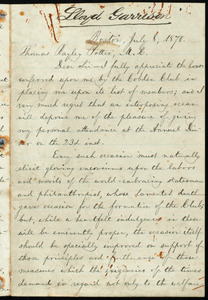 Lloyd Garrison
Boston, July 8, 1870.
Thomas Bayley Potter, M. P.
Dear Sir—I fully appreciate the honor
conferred upon me by the Cobden Club in
placing me upon its list of members; and I
very much regret that an interposing ocean
will deprive me of the pleasure of giving
my personal attendance at the Annual Din-
ner on the 23d inst.
Every such occasion must naturally
elicit glowing encomiums upon the labors
and worth of the world-embracing statesman
and philanthropist, whose lamented death
gave occasion for the formation of the Club;
but, while a heartfelt indulgence in these
will be eminently proper, the occasion itself
should be specially improved in support of
those principles and in the urging of those
measures which the exigencies of the times
demand in regard not only to the welfare